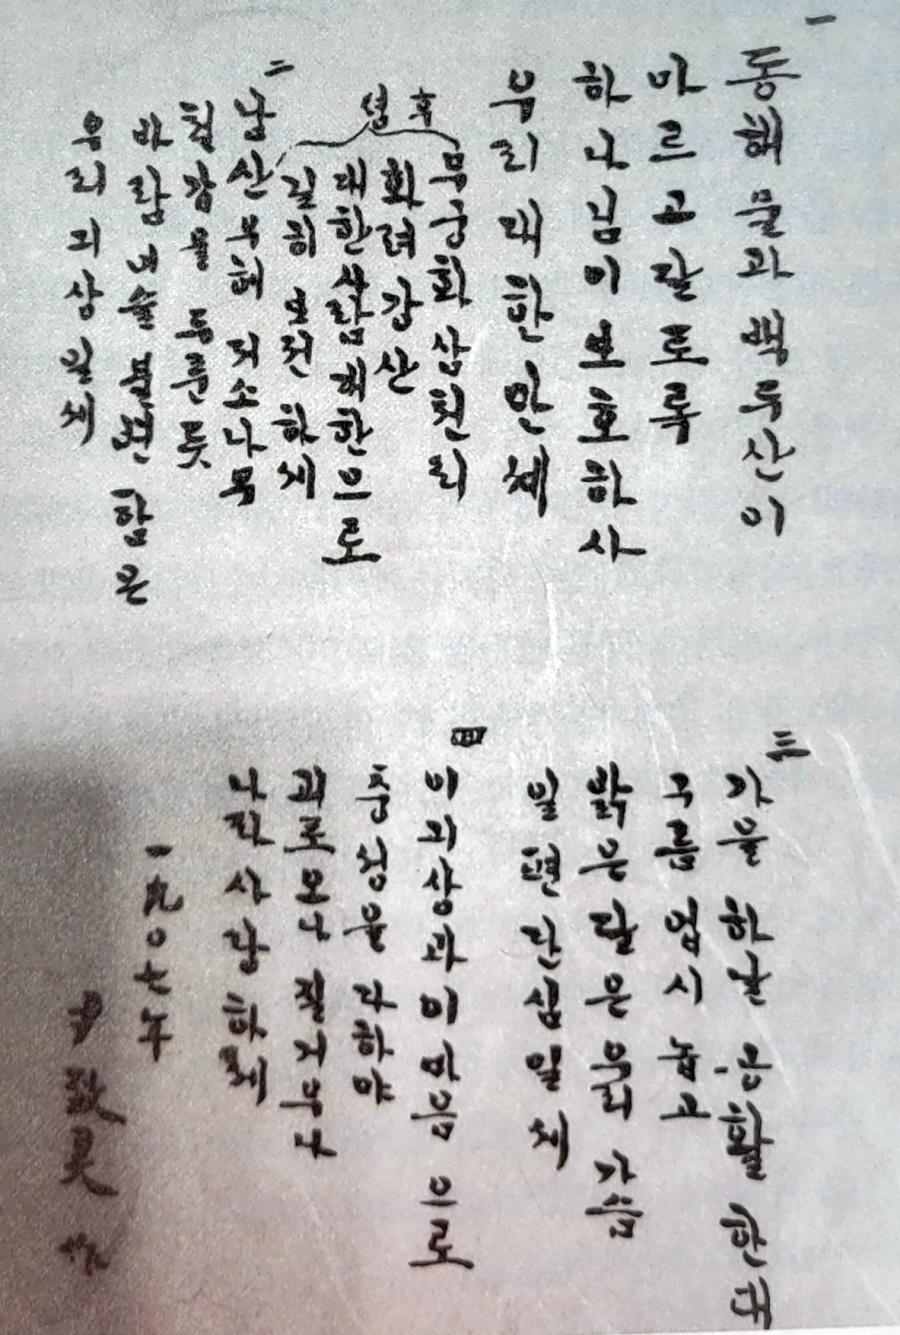 一
동해물과 백두산이
마르고 달토록
하나님이 보호하사
우리 대한 만세
후렴
무궁화 삼천리
화려강산
대한사람 대한으로
길히 보전 하세
二
남산 우헤 저 소나무
철갑을 두룬듯
바람 이슬 불변 함은
우리 긔상일세
三
가을 하날 공활 한대
구름 업시 놉고
밝은 달은 우리 가슴
일편단심일세
四
이 긔상과 이 마음 으로
충성을 다하야
괴로오나 질거우나
나라 사랑 하세
一九〇七年
尹致昊 作